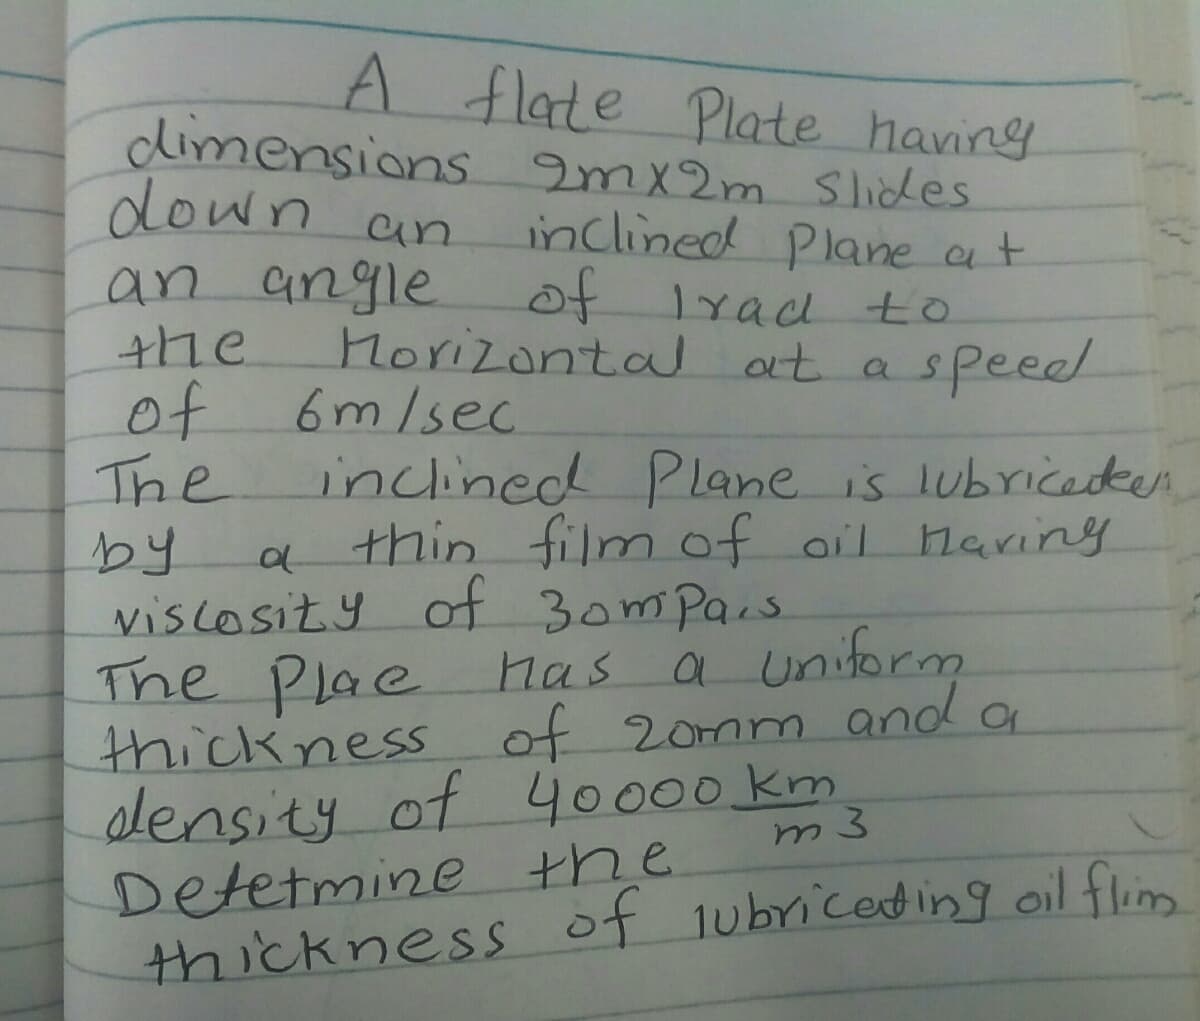 A flate Plate having
dimensions 2mx2m slides
down an inclined Plane at
an angle of 1rad to
the Horizontal at a speed
of 6m/sec
The inclined Plane is lubricated
by a thin film of oil Having
viscosity of 30mPa.s
The Plae has a uniform
thickness of 20mm and a
density of 40000 km
m3
Detetmine the
thickness of lubricating oil flim